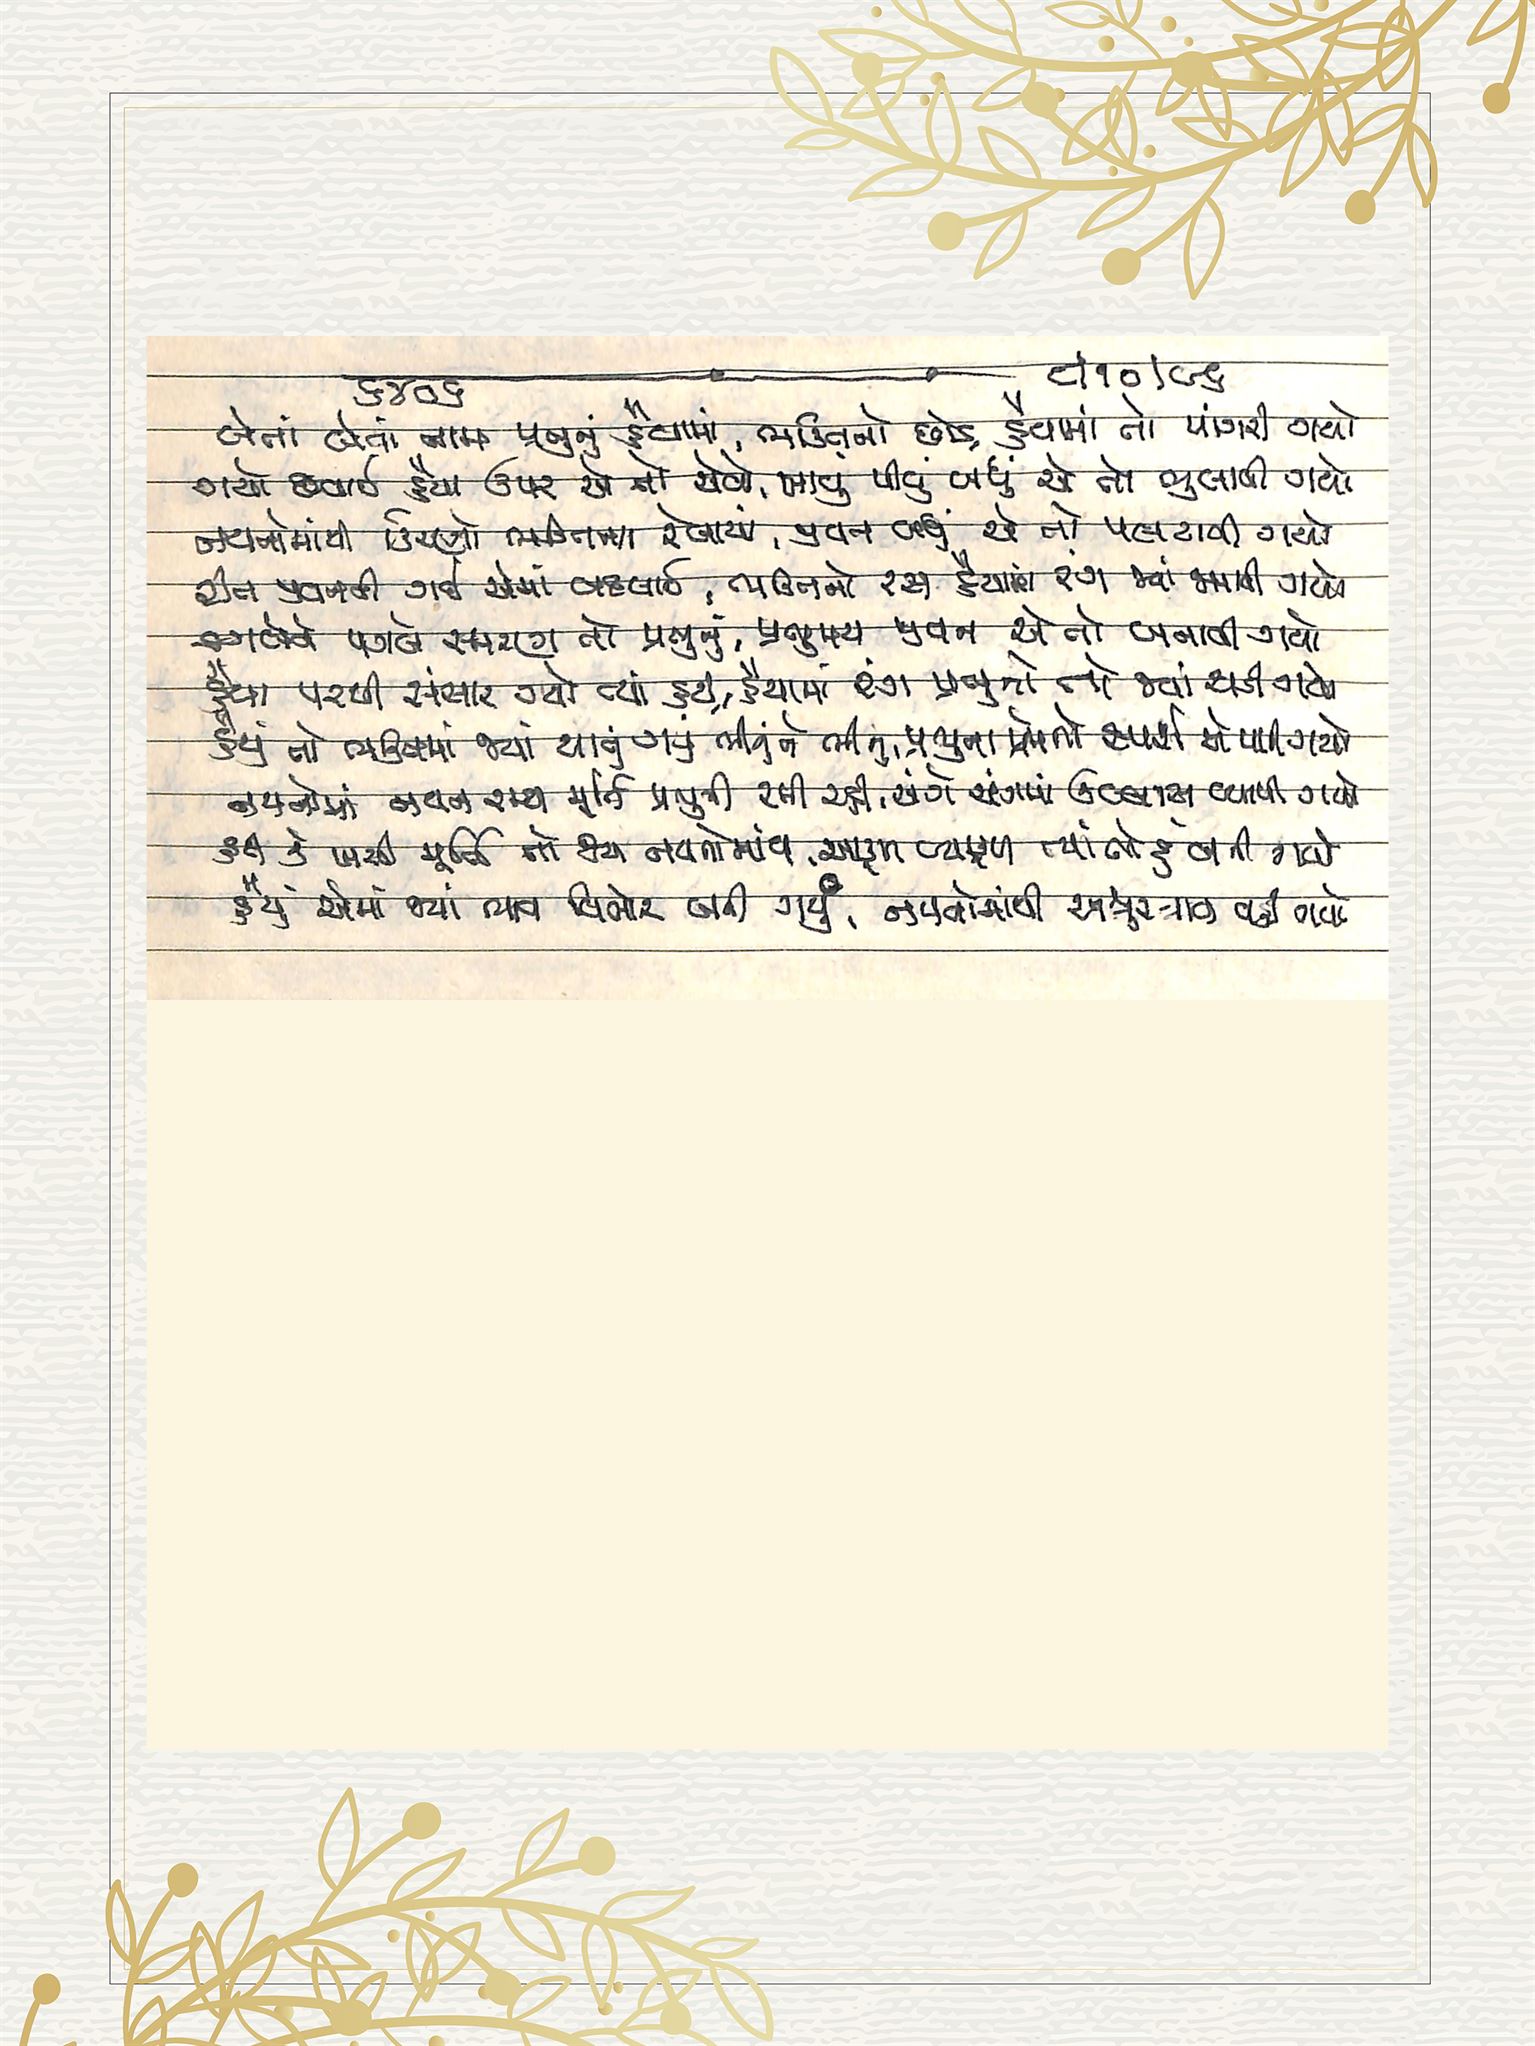 ૬૪૦૬ ૮/૧૦/૮૬
લેતાં લેતાં નામ પ્રભુનું હૈયામાં, ભક્તિનો છોડ હૈયામાં તો પાંગરી ગયો
ગયો છવાઈ હૈયા ઉપર એ તો એવો, ખાવું પીવું બધું એ તો ભુલાવી ગયો
નયનોમાંથી કિરણો ભક્તિના રેલાયાં, જીવન બધું એ તો પલટાવી ગયો
રીત જીવનની ગઈ એમાં બદલાઈ, ભક્તિનો રસ હૈયામાં રંગ જ્યાં જમાવી ગયો
પગલે સ્મરણ તો પ્રભુનું, પ્રભુમય જીવન એ તો બનાવી ગયો
હૈયા પરથી સંસાર ગયો ત્યાં હટી, હૈયામાં રંગ પ્રભુનો તો જ્યાં ચડી ગયો
હૈયું તો ભક્તિમાં જ્યાં થાતું ગયું ભીનું ને ભીનું, પ્રભુના પ્રેમનો સ્પર્શ એ પામી ગયો
નયનોમાં નયન રમ્ય મૂર્તિ પ્રભુની રમી રહી, અંગે અંગમાં ઉલ્લાસ વ્યાપી ગયો
હટી કે ખસી મૂર્તિ તો જ્યાં નયનોમાંથી, વ્યાકુળ ત્યાં તો હું બની ગયો
હૈયું એમાં જ્યાં ભાવ વિભોર બની ગયું, નયનોમાંથી અશ્રુસ્ત્રાવ વહી ગયો